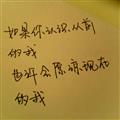 如果你认识从前
的我
也许会原谅现在
的我